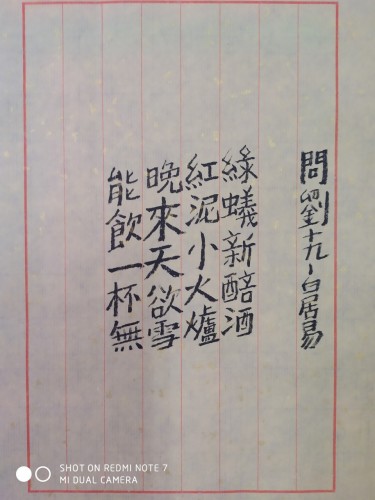 問劉十九、白居易
綠蟻新醅酒
紅泥小火爐
晚來天欲雪
能飲一杯無
SHOT ON REDMI NOTE 7
MI DUAL CAMERA